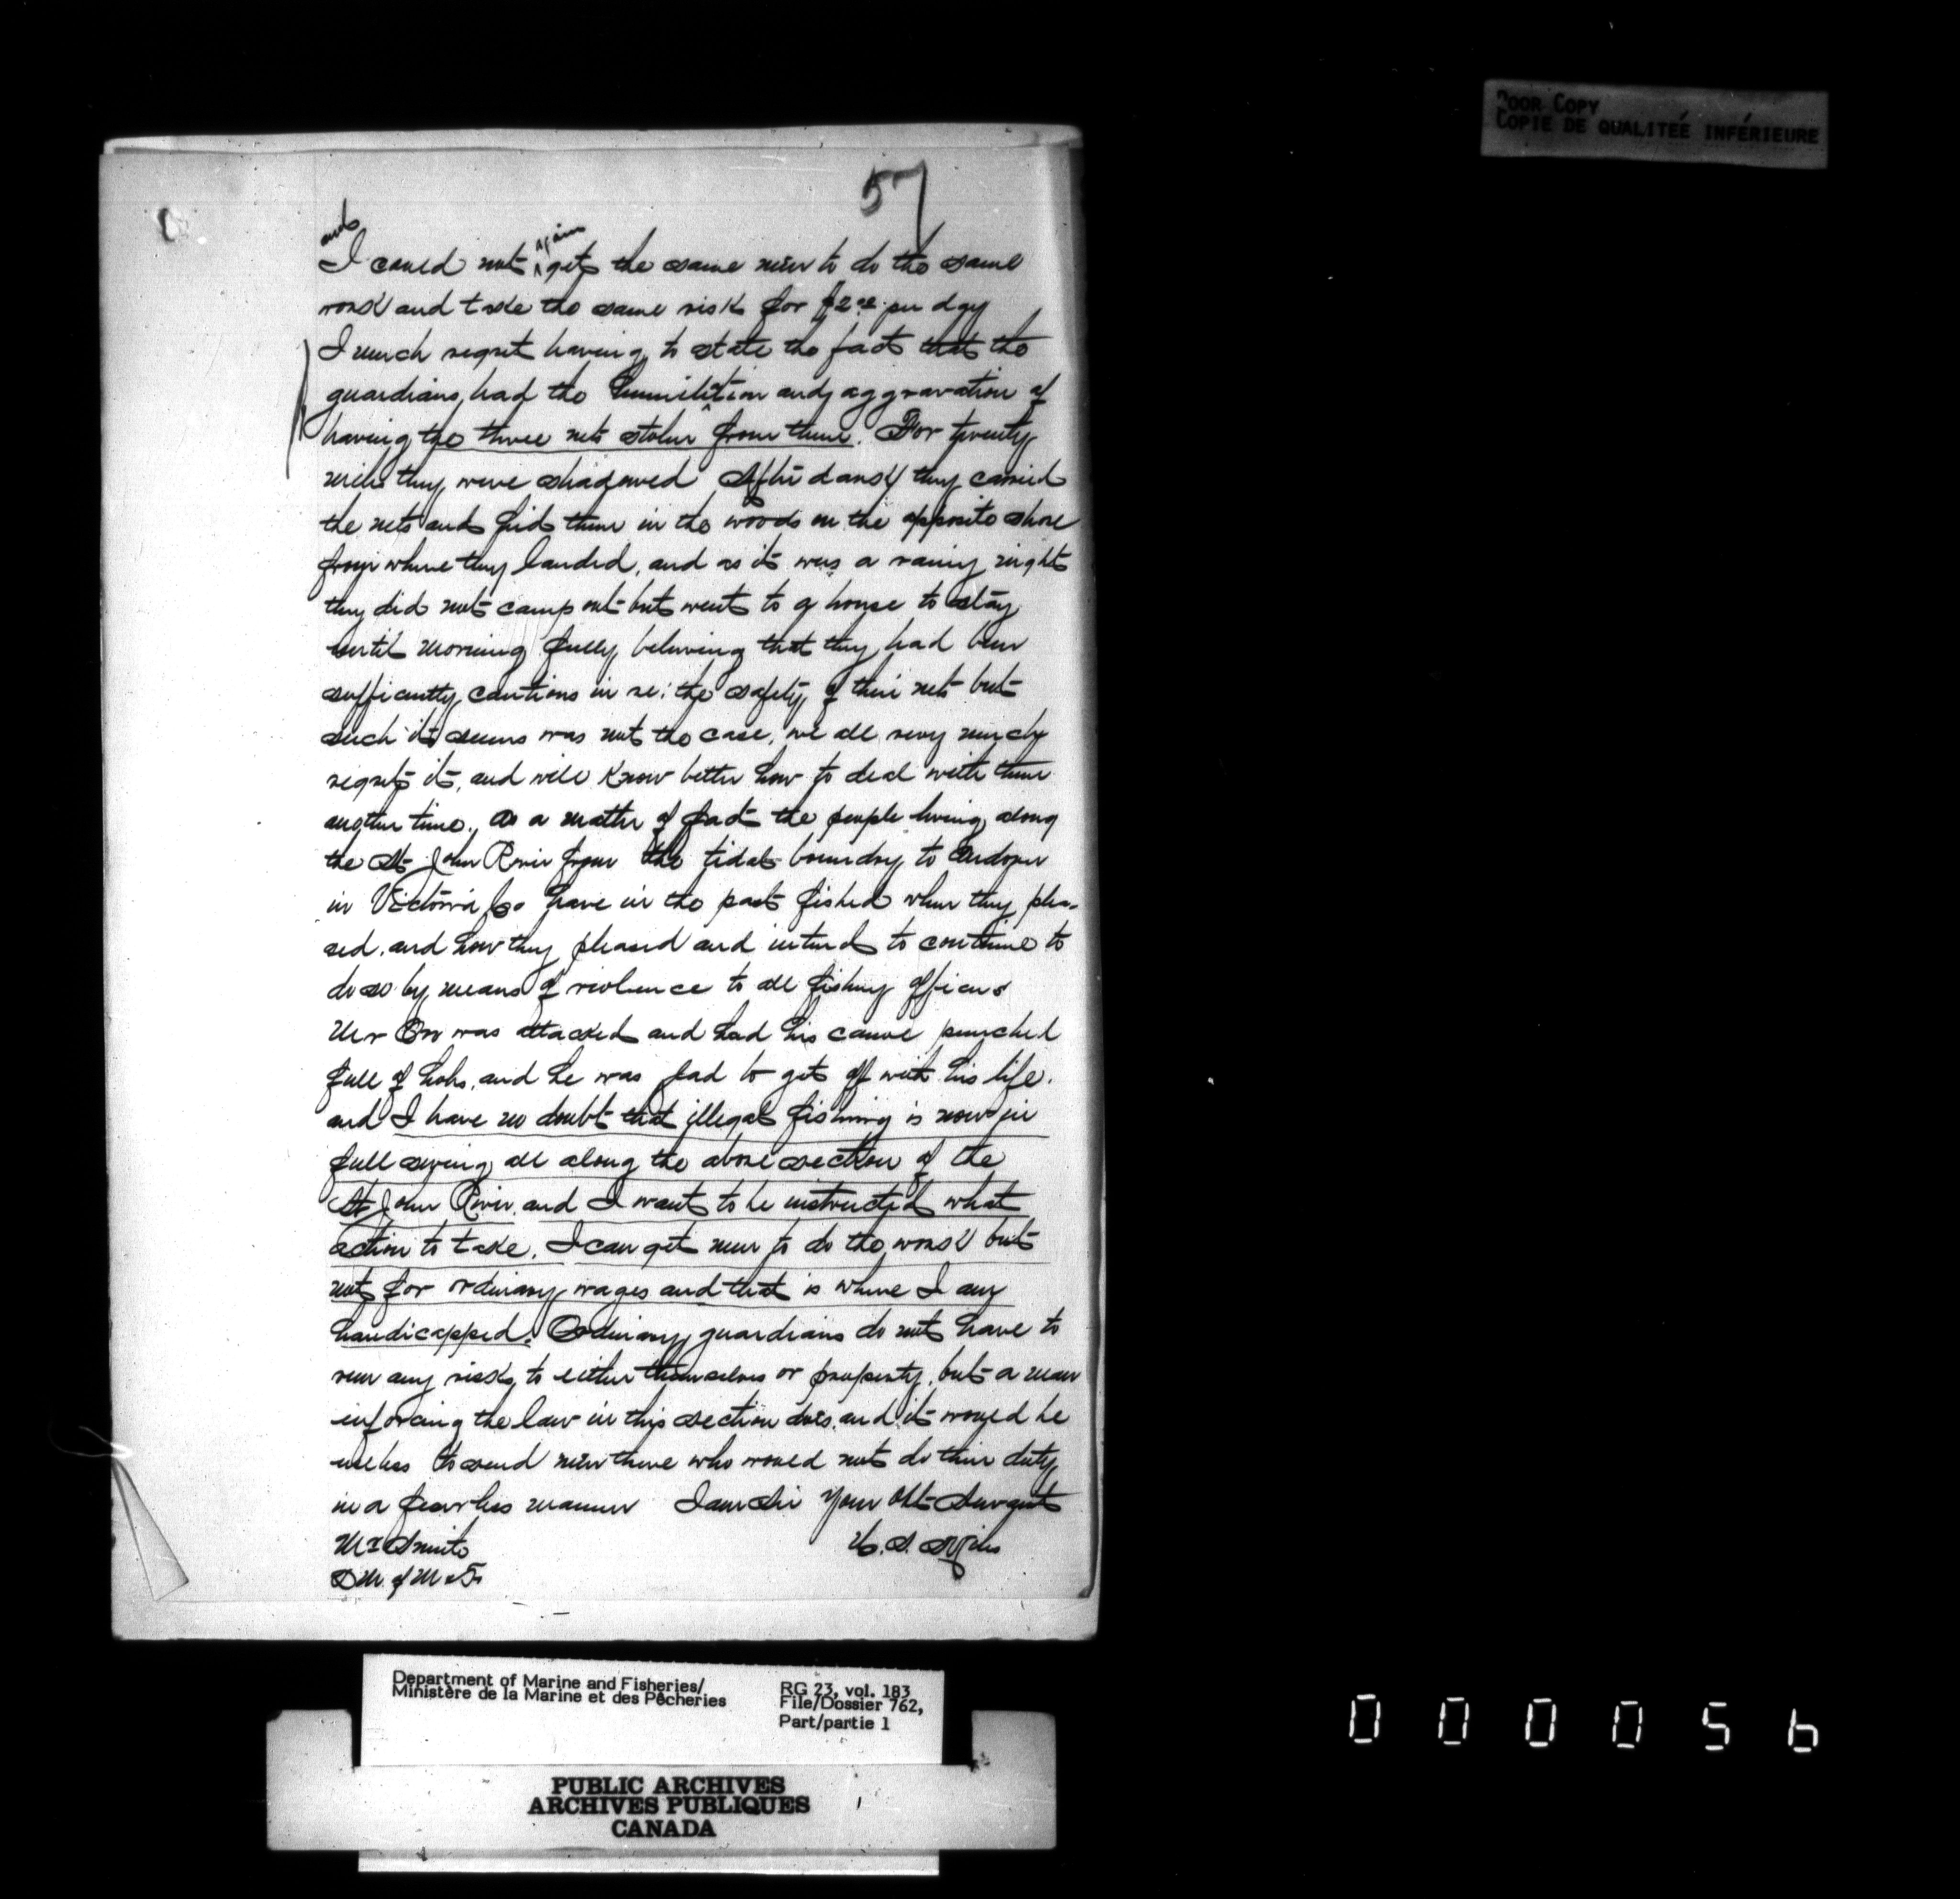 POOR COPY
COPIE DE QUALITEÉ INFÉRIEURE
57
and
I could not again get the same men to do the same
work and take the same risk for $2.00 per day
I much regret having to state the fact that the
guardians, had the humilition and aggravation of
having the three nets stolen from them. For twenty
miles they were shadowed After dark they carried
the nets and hid them in the woods on the opposite shore
from where they landed, and as it was a rainy night
they did not camp out but went to a house to stay
until morning fully believing that they had been
sufficiantly cautions in re: the safety of their nets but
such it seems was not the case, we all very much
regret it, and will know better how to deal with them
another time. As a matter of fact the people living along
the St. John River from the tidal boundry to Andover
in Victoria Co have in the past fished when they plea-
sed, and how they pleased and intend to continue to
do so by means of violence to all fishing officers
Mr Orr was attacked and had his canoe punched
full of holes, and he was glad to get off with his life.
and I have no doubt that illegal fishing is now in
full swing all along the above section of the
St John River, and I want to be instructed what
action to take. I can get men to do the work but
not for ordinary wages and that is where I am
handicapped. Ordinary guardians do not have to
run any risks to either themselves or property, but a man
inforcing the law in this section does, and it would be
useless to send men there who would not do their duty
in a fearless manner I am Sir Your Obt Servant
Mr Smith
D M. of M & F.
Department of Marine and Fisheries/
Ministère de la Marine et des Pêcheries
RG 23, vol. 183
File/Dossier 762,
Part/partie 1
PUBLIC ARCHIVES
ARCHIVES PUBLIQUES
CANADA
000056